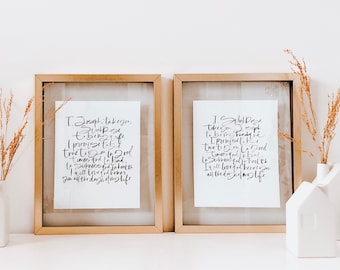 I, Joseph, take you,
to be my wife
I promise to be
true to you in good
times and in bad
in sickness and in health
I will love and honor
you all the days of my life
I,
take you, Joseph
to be my husband
I promise to be
true to you in good
times and in bad
in sickness and in health
I will love and honor you
all the days of my life